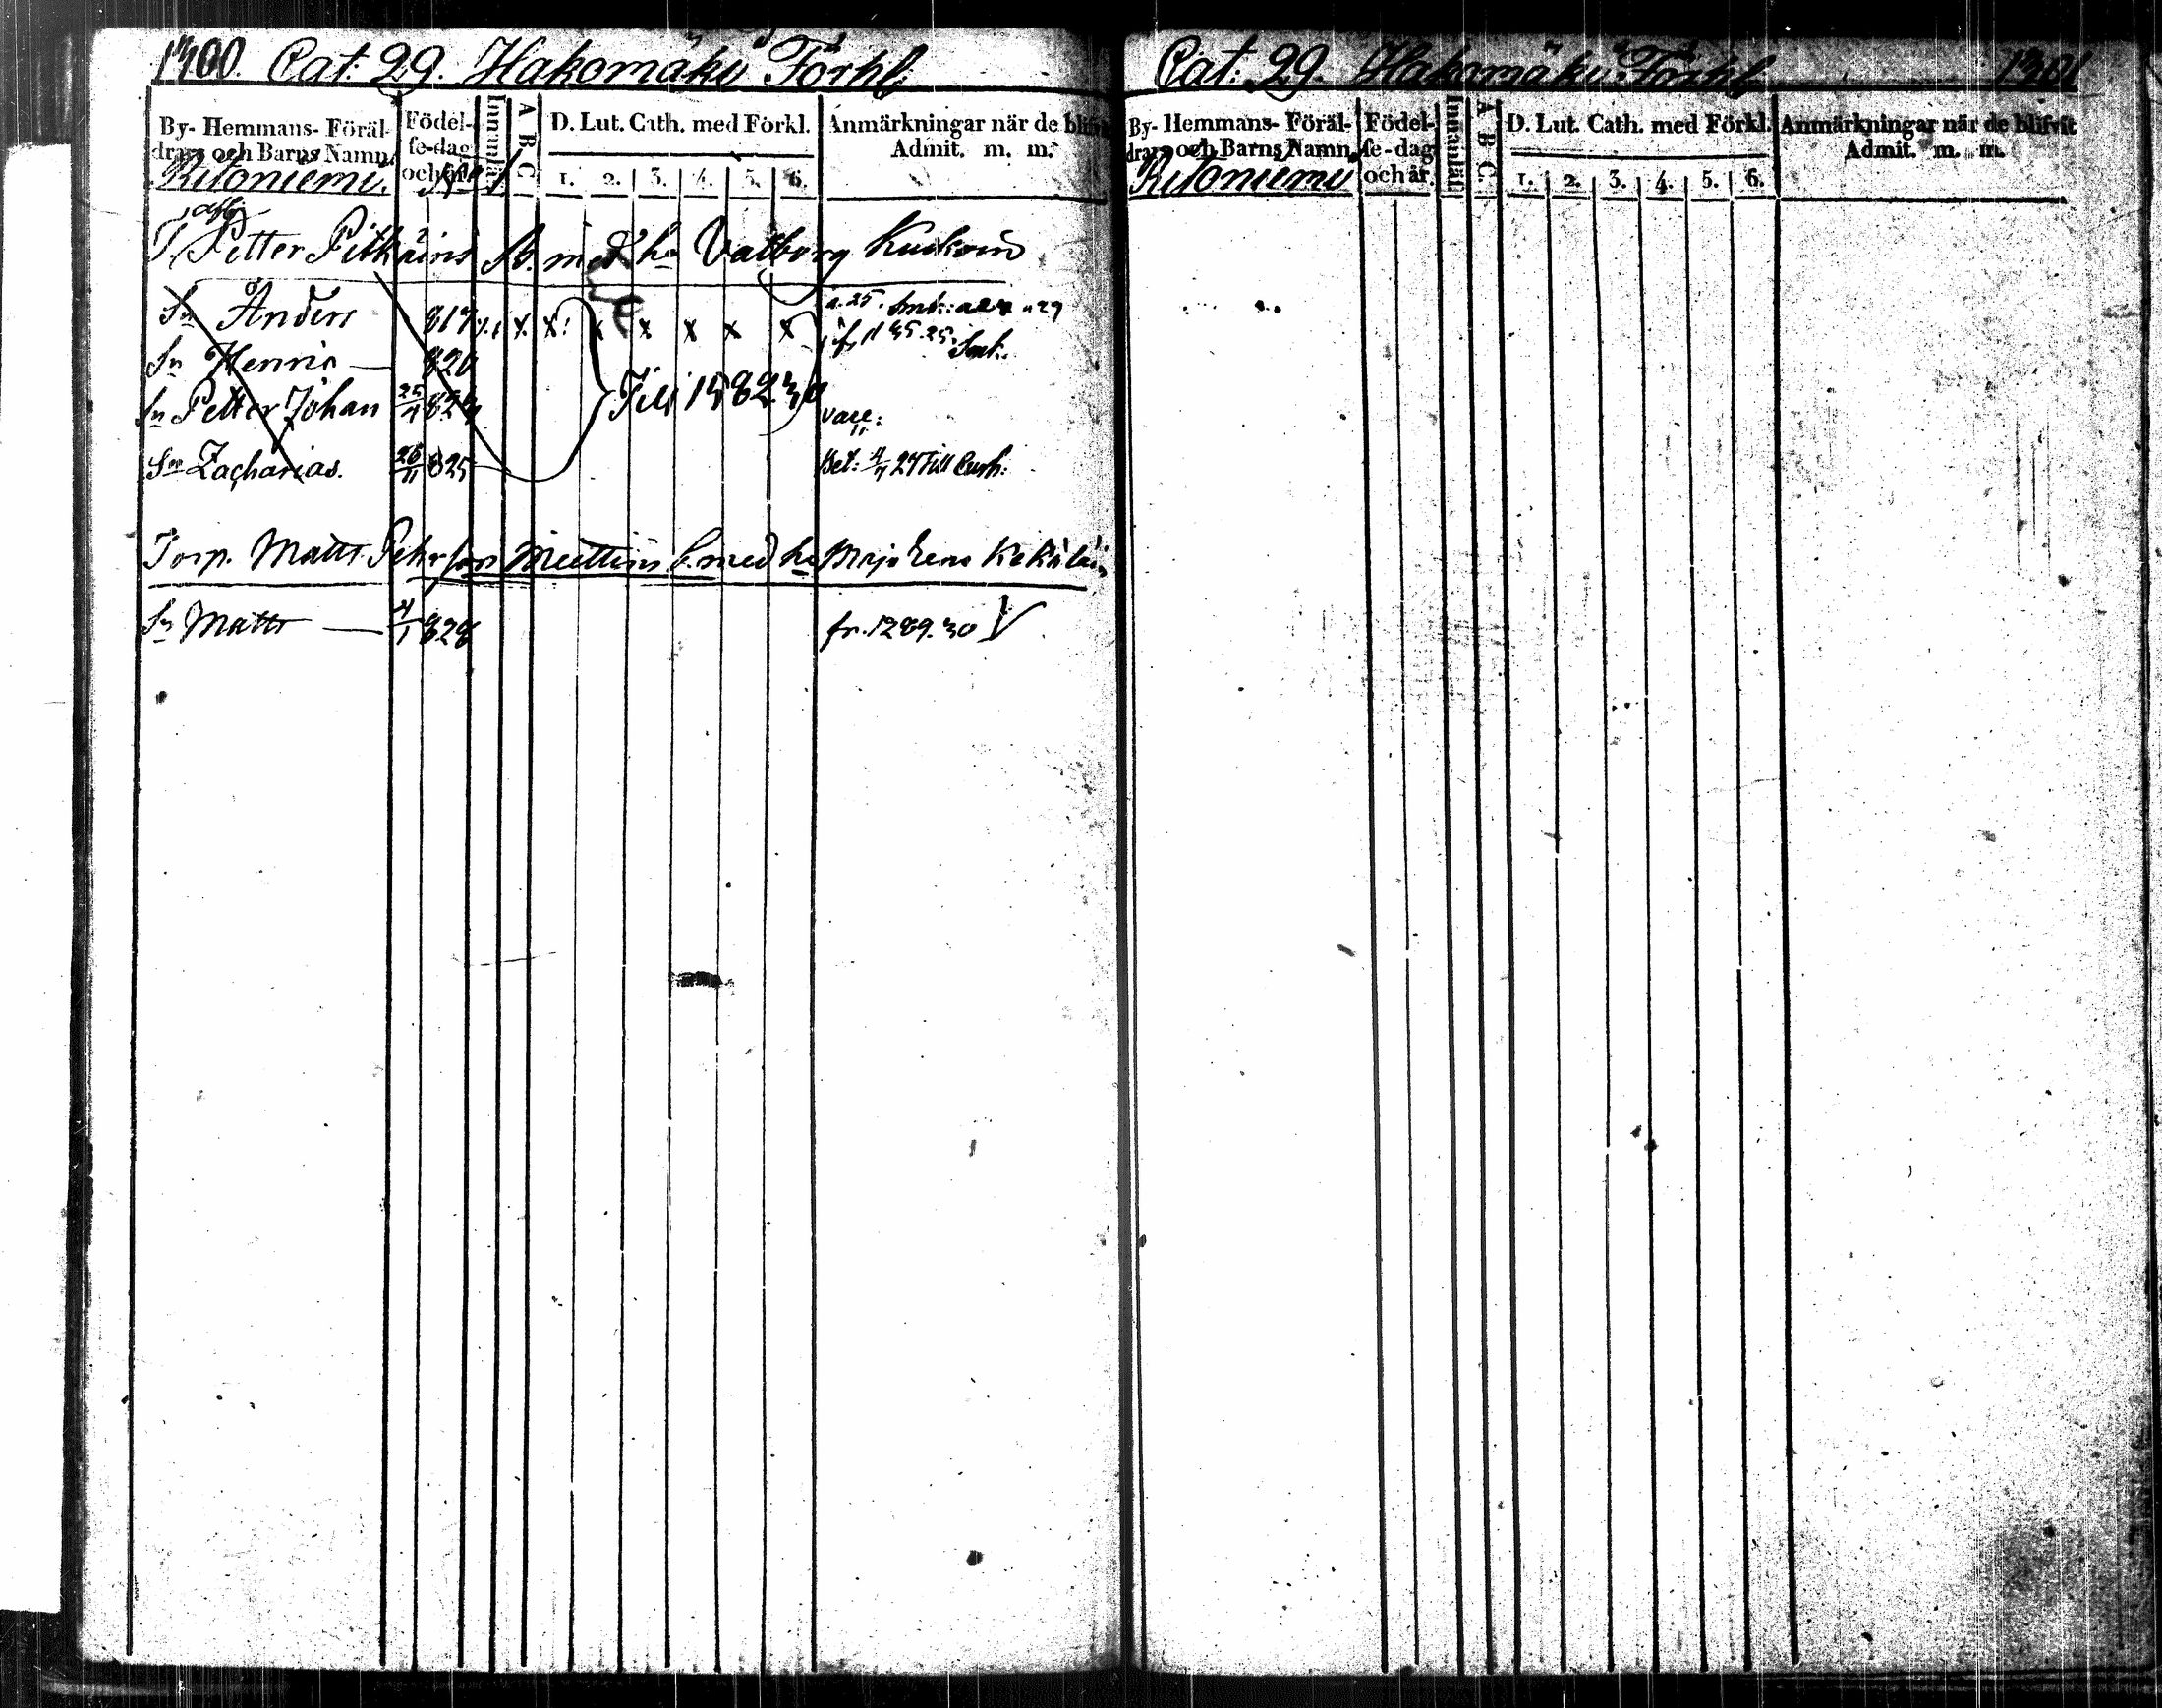 1300. Cat. 29. Hakomäki Förhl.
By- Hemmans- Föräldrars och Barns Namn.
Födelse-dag och år.
Innanläs.
A B C
D. Lut. Cath. med Förkl.
1. 2. 3. 4. 5. 6.
Anmärkningar när de blifvit Admit. m. m.
Ritoniemi.
T. Petter Pitkäins B. med h. Valborg Kuikoin
Sn Anders 817 x x x x x x x
Sn Henric — 820
Sn Petter Johan 824
Till 1582 30
vacc:
Sn Zacharias. 26/11 825
Torp. Matts Pehrson Muttoin B. med ho Maja Lena Kekäläin
Sn Matts — 4/1 828 fr. 1289. 30
Cat. 29. Hakomäki Förhl. 1301
By- Hemmans- Föräldrars och Barns Namn.
Födelse-dag och år.
Innanläs.
A B C.
D. Lut. Cath. med Förkl.
1. 2. 3. 4. 5. 6.
Anmärkningar när de blifvit Admit. m. m.
Ritoniemi